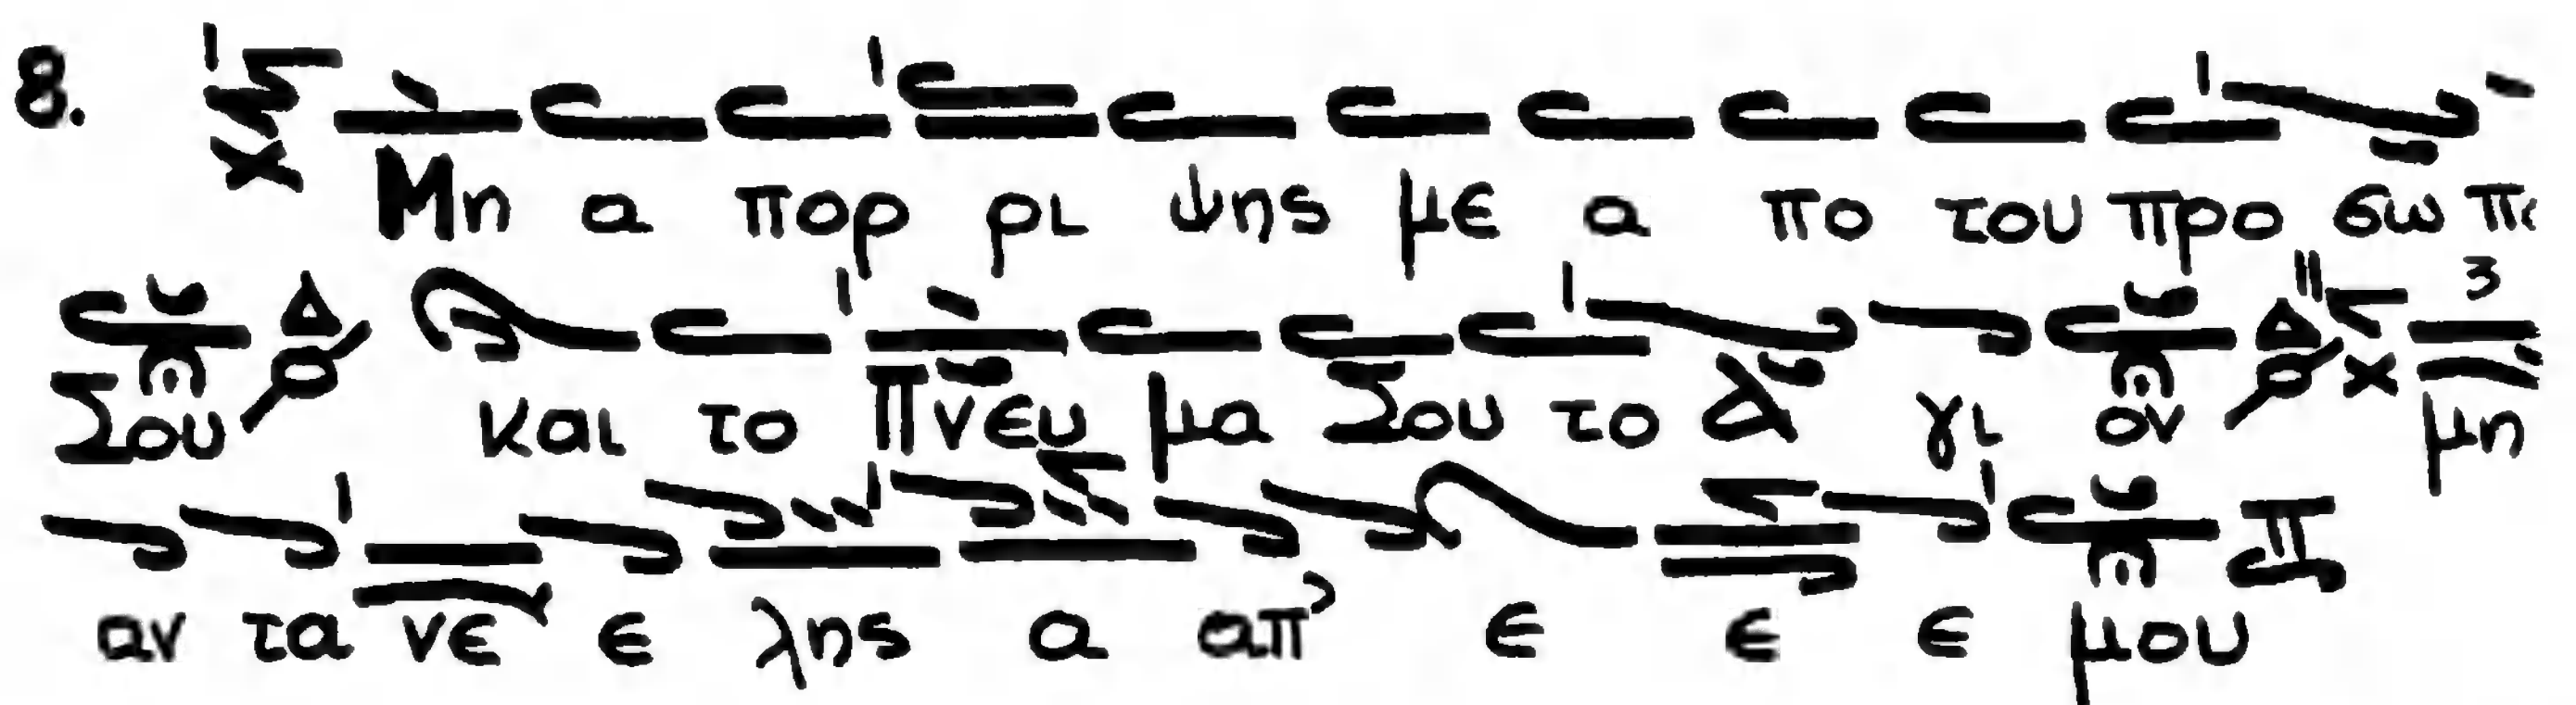 8. Μη α πορ ρι ψης με α πο του προ σω πο
Σου Δ και το Πνευ μα Σου το Α γι ον Δ μη
αν τα νε ε λης α απ' ε ε ε μου Π